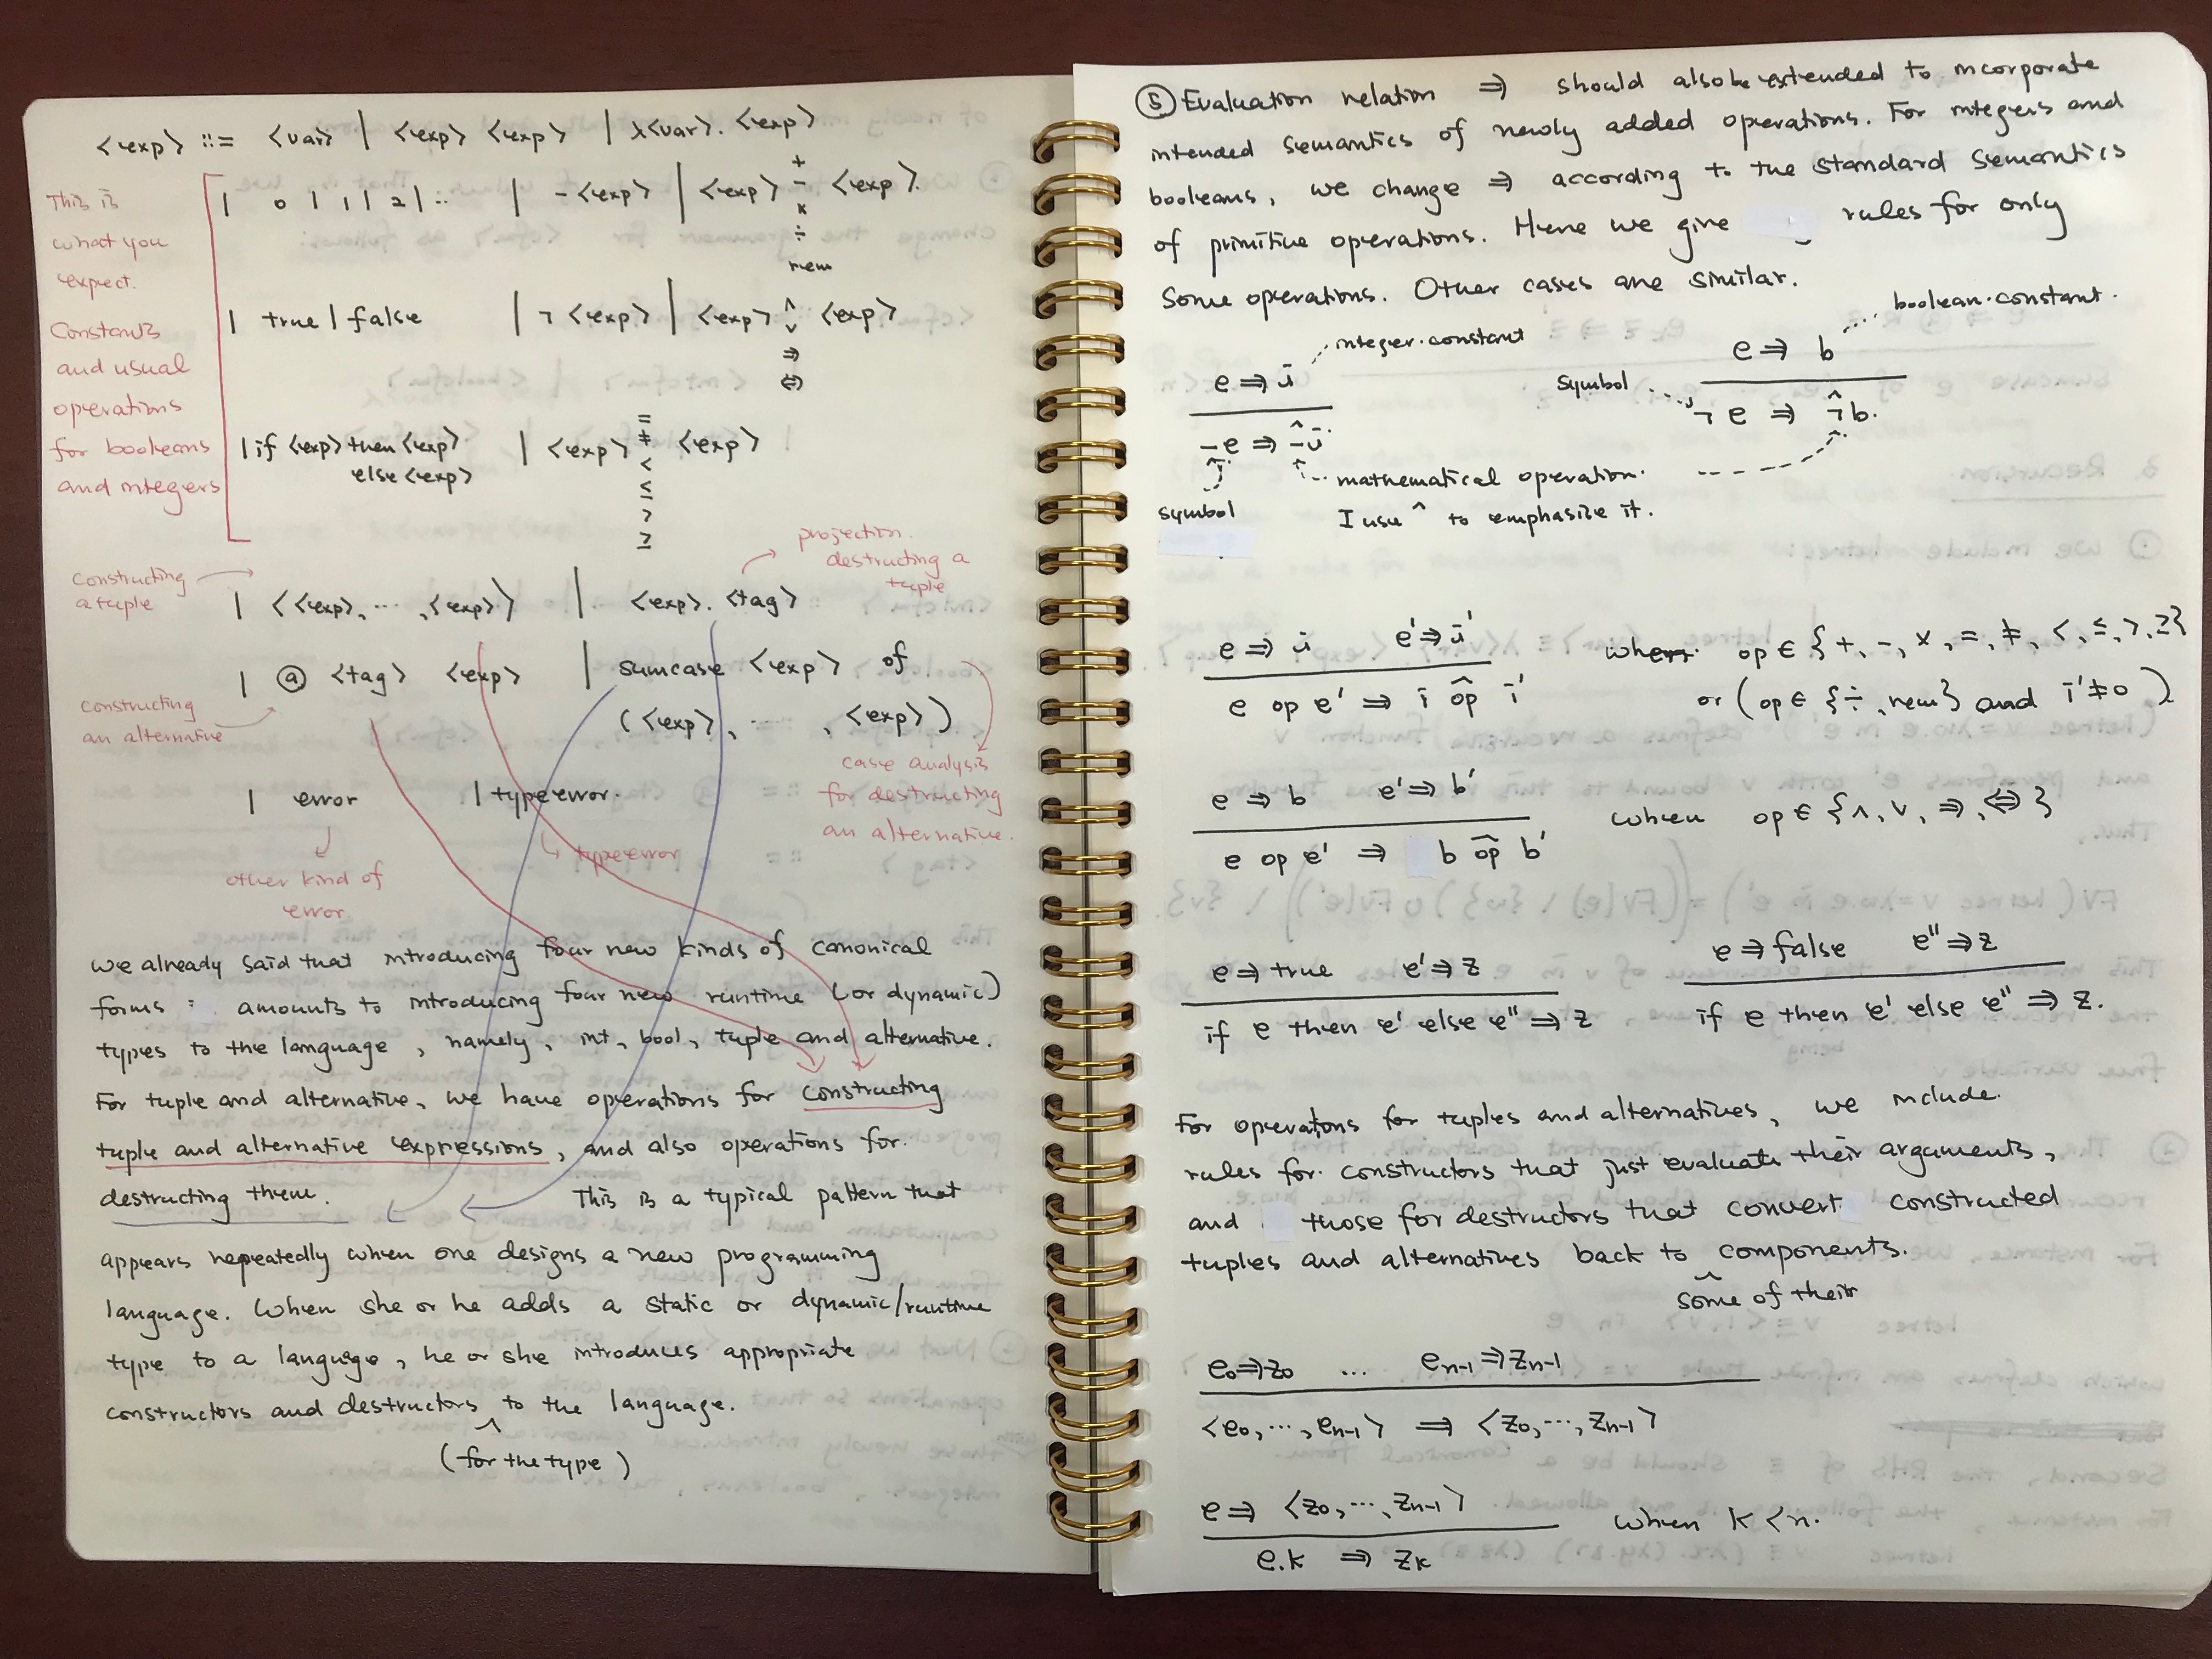 <exp> ::= <var> | <exp> <exp> | λ<var>. <exp>
This is
what you
expect.
Constants
and usual
operations
for booleans
and integers
| 0 | 1 | 2 | ·· | -<exp> | <exp> + <exp>.
-
×
÷
rem
| true | false | ¬ <exp> | <exp> ∧ <exp>
∨
⇒
⇔
| if <exp> then <exp> | <exp> = <exp>
else <exp>
≠
<
≤
>
≥
constructing
a tuple
projection.
destructing a
tuple
| <<exp>, ···, <exp>> | <exp>. <tag>
| @ <tag> <exp> | sumcase <exp> of
(<exp>, ···, <exp>)
constructing
an alternative
case analysis
for destructing
an alternative.
| error | typeerror.
other kind of
error
type error
We already said that introducing four new kinds of canonical
forms amounts to introducing four new runtime (or dynamic)
types to the language, namely, int, bool, tuple and alternative.
For tuple and alternative, we have operations for constructing
tuple and alternative expressions, and also operations for
destructing them. This is a typical pattern that
appears repeatedly when one designs a new programming
language. When she or he adds a static or dynamic/runtime
type to a language, he or she introduces appropriate
constructors and destructors ^ to the language.
(for the type)
⑤ Evaluation relation ⇒ should also be extended to incorporate
intended semantics of newly added operations. For integers and
booleans, we change ⇒ according to the standard semantics
of primitive operations. Here we give rules for only
some operations. Other cases are similar.
integer constant
boolean constant.
e ⇒ i
-e ⇒ -̂i
symbol
e ⇒ b
symbol
¬e ⇒ ¬̂b.
mathematical operation.
I use ^ to emphasize it.
e ⇒ i e' ⇒ i'
e op e' ⇒ i op̂ i'
when op ∈ {+, -, ×, =, ≠, <, ≤, >, ≥}
or (op ∈ {÷, rem} and i' ≠ 0)
e ⇒ b e' ⇒ b'
e op e' ⇒ b op̂ b'
when op ∈ {∧, ∨, ⇒, ⇔}
e ⇒ true e' ⇒ z
if e then e' else e'' ⇒ z
e ⇒ false e'' ⇒ z
if e then e' else e'' ⇒ z.
For operations for tuples and alternatives, we include
rules for constructors that just evaluate their arguments,
and those for destructors that convert constructed
tuples and alternatives back to ^ components.
some of their
e0 ⇒ z0 ... en-1 ⇒ zn-1
<e0, ···, en-1> ⇒ <z0, ···, zn-1>
e ⇒ <z0, ···, zn-1>
e.k ⇒ zk
when k < n.